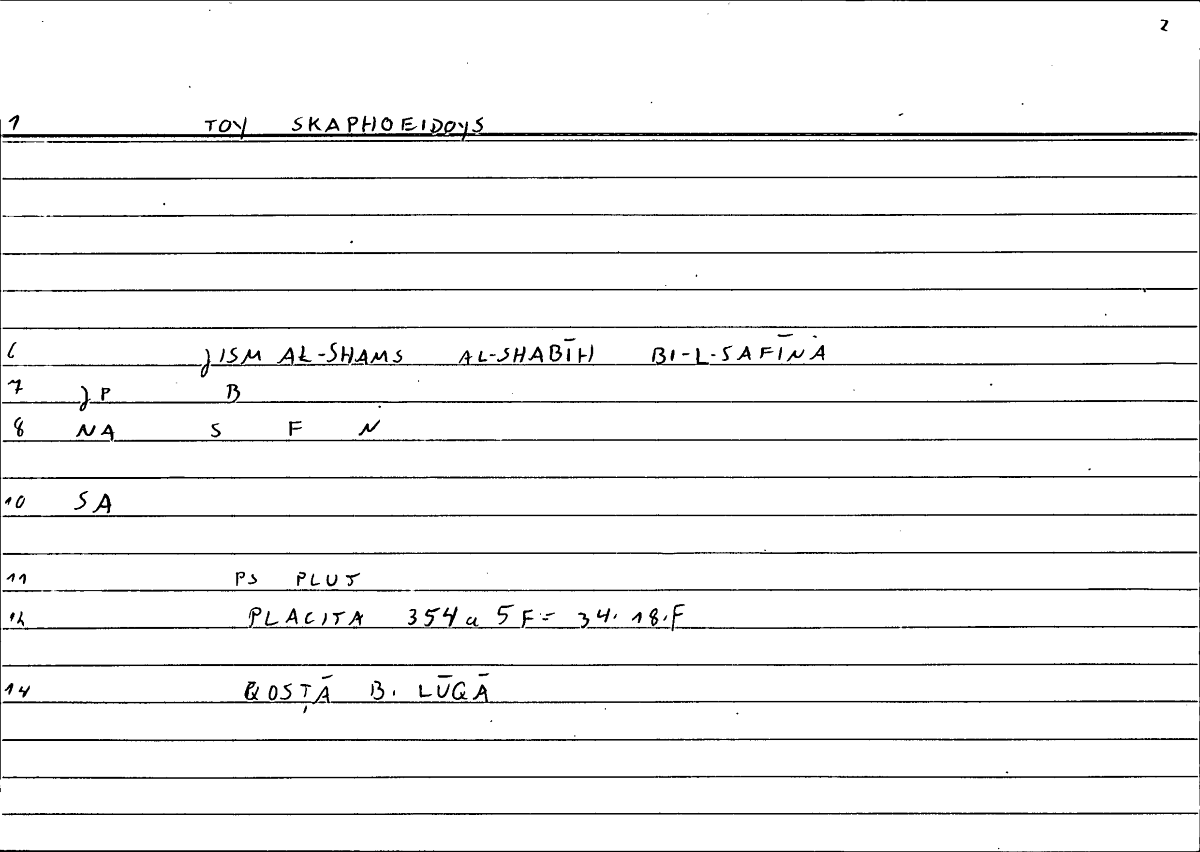 2
1 TOY SKAPHOEIDOYS
6 JISM AL-SHAMS AL-SHABĪH BI-L-SAFĪNA
7 JP B
8 NA S F N
10 SA
11 PS PLUT
12 PLACITA 354a 5 F = 34. 18.F
14 QOSṬĀ B. LŪQĀ